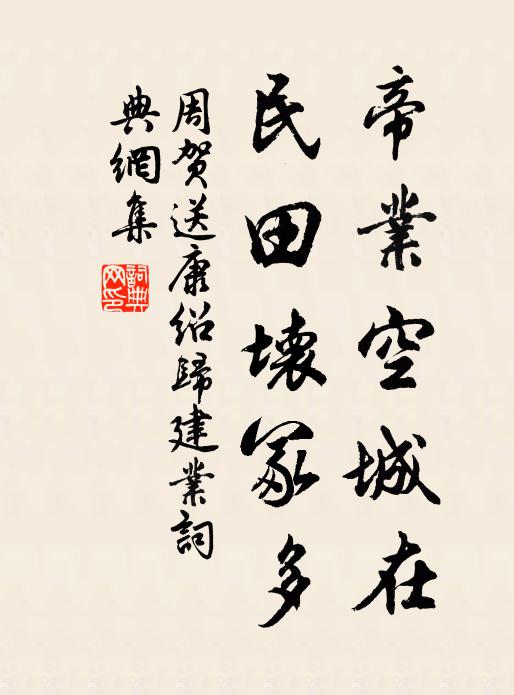 帝業空城在
民田壞冢多
周賀送康紹歸建業詞
典網集
詞典網印